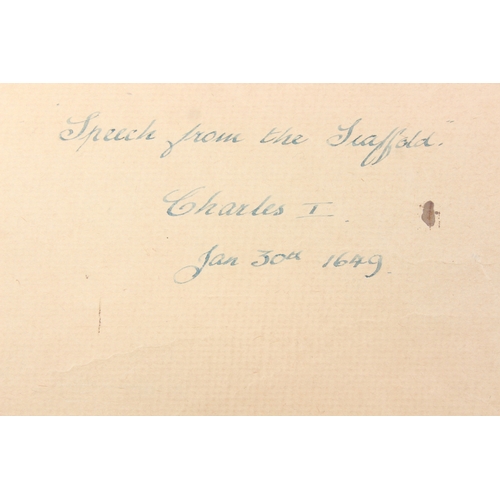 Speech from the Scaffold.
Charles I.
Jan 30th 1649.